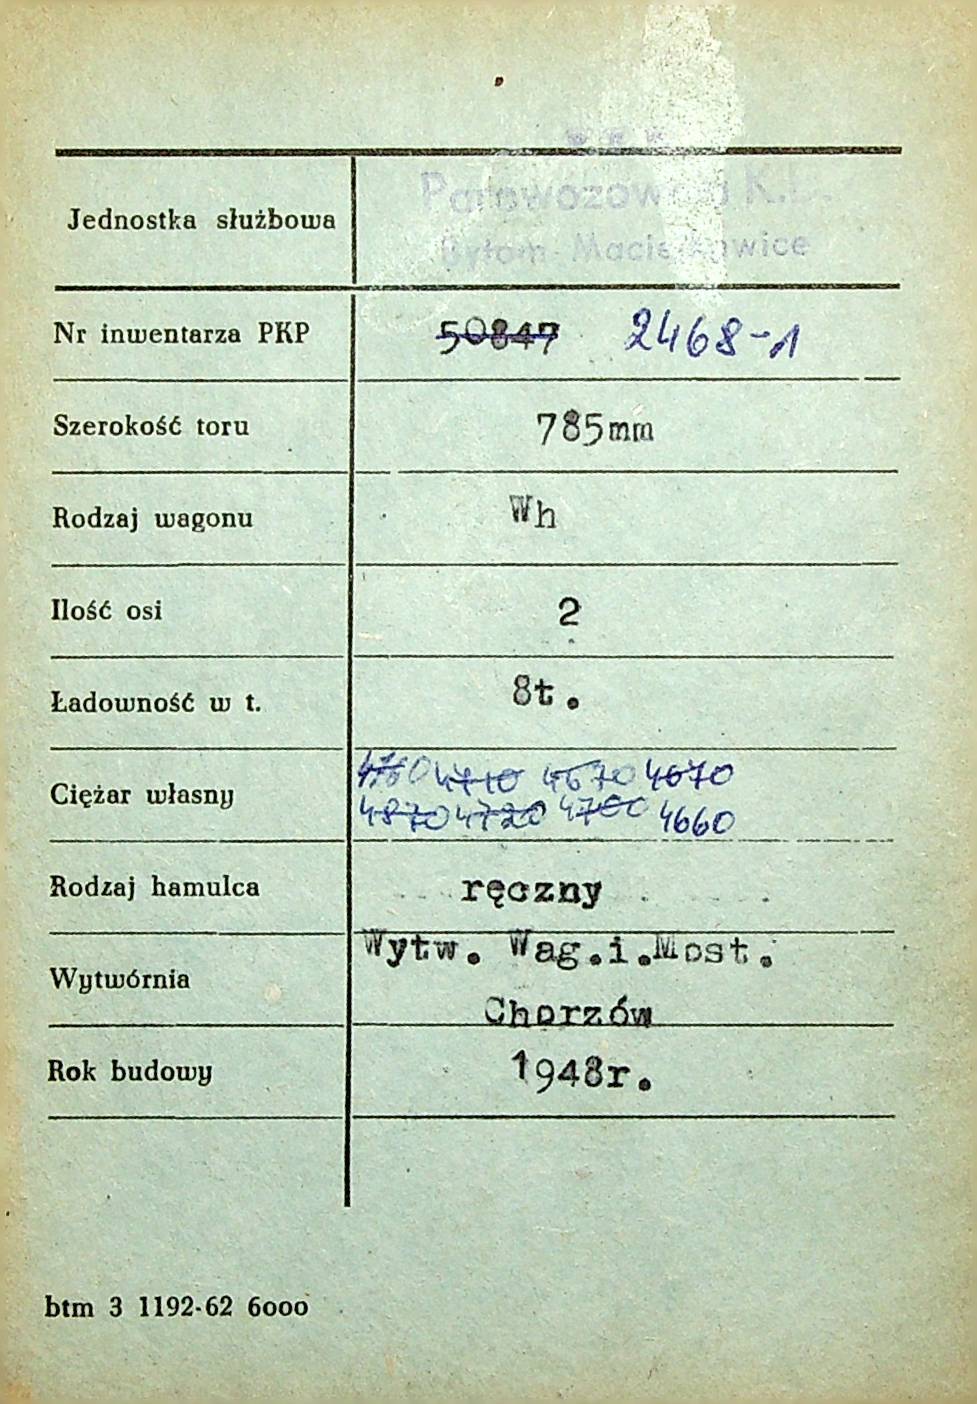 Jednostka służbowa
Bytom-Maciejkowice
Nr inwentarza PKP 50847 2468-1
Szerokość toru 785mm
Rodzaj wagonu Wh
Ilość osi 2
Ładowność w t. 8t.
Ciężar własny 4670 4670
4870 4720 4700 4660
Rodzaj hamulca ręczny
Wytwórnia Wytw. Wag.i.Most.
Chorzów
Rok budowy 1948r.
btm 3 1192-62 6000